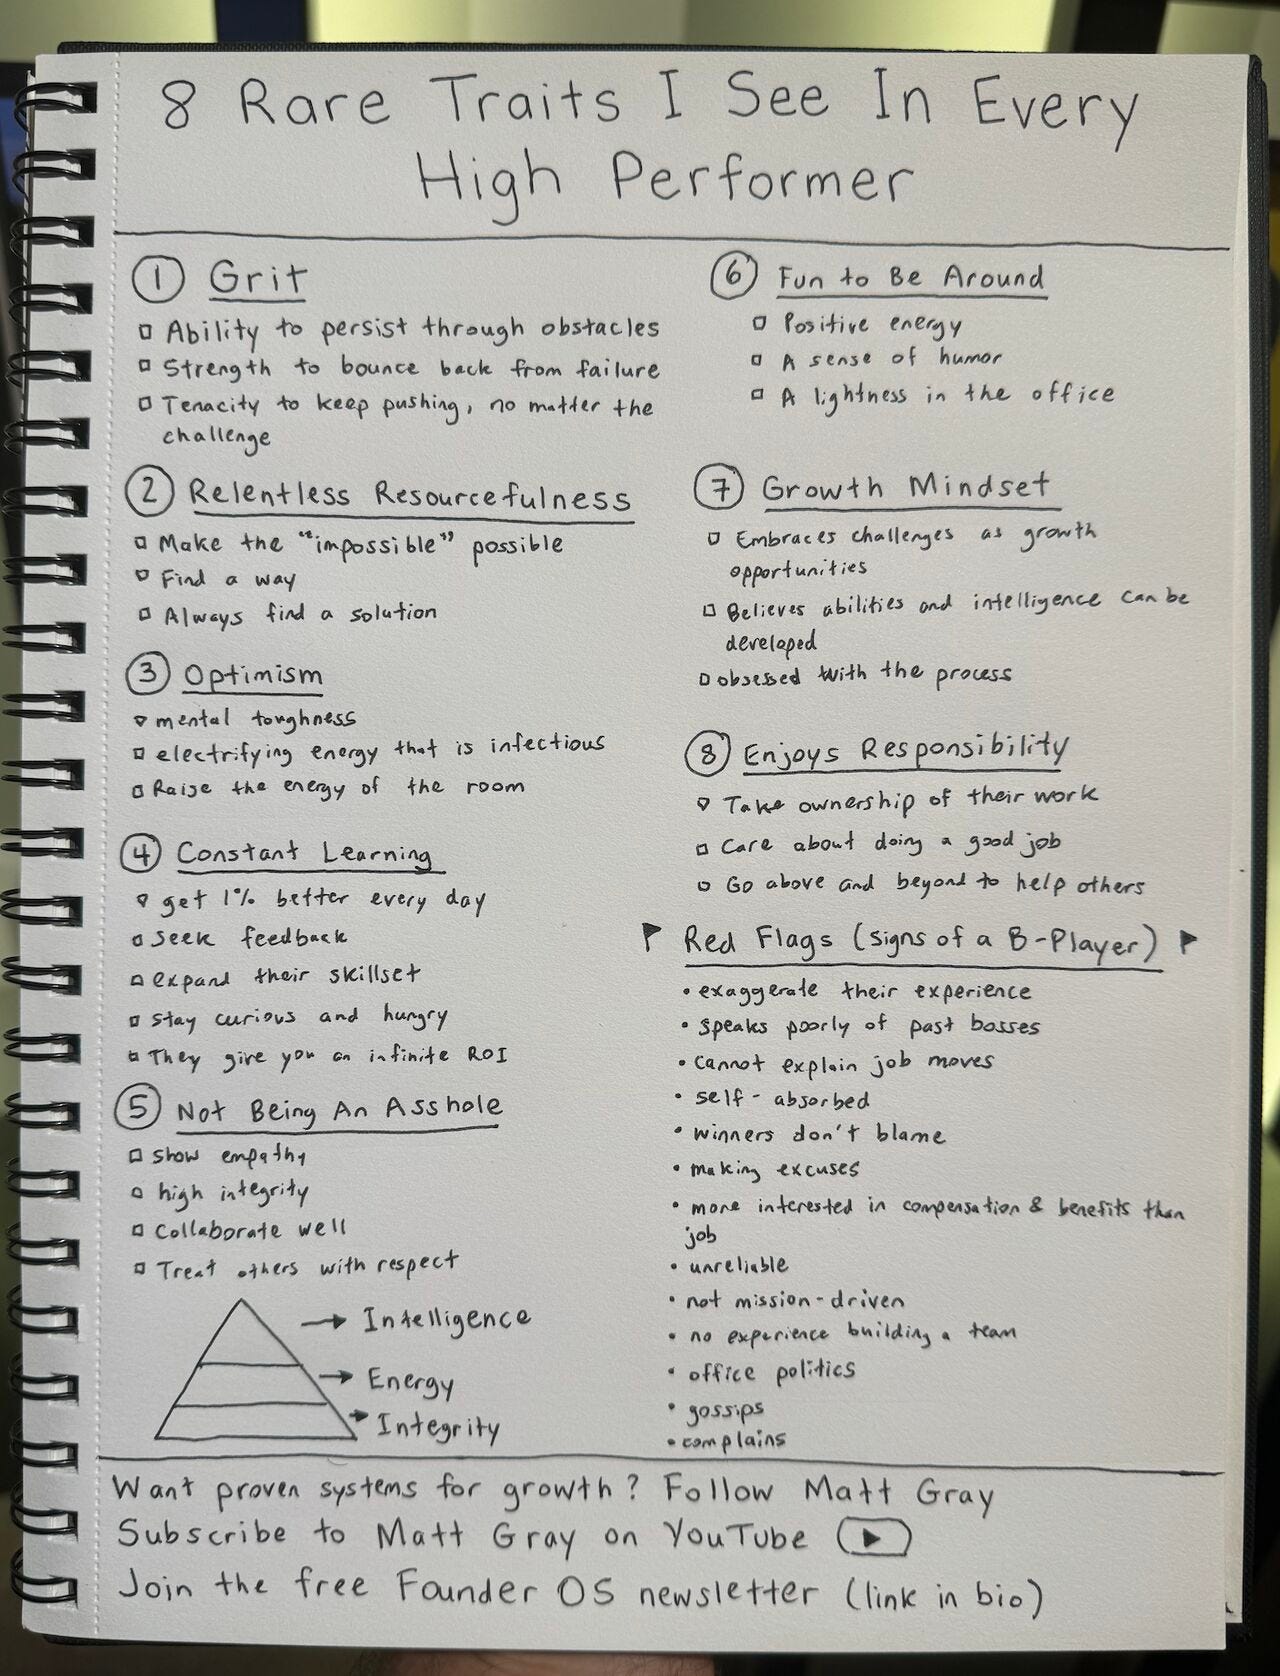 8 Rare Traits I See In Every
High Performer
1 Grit
Ability to persist through obstacles
Strength to bounce back from failure
Tenacity to keep pushing, no matter the
challenge
2 Relentless Resourcefulness
Make the "impossible" possible
Find a way
Always find a solution
3 Optimism
mental toughness
electrifying energy that is infectious
Raise the energy of the room
4 Constant Learning
get 1% better every day
seek feedback
expand their skillset
stay curious and hungry
They give you an infinite ROI
5 Not Being An Asshole
show empathy
high integrity
Collaborate well
Treat others with respect
Intelligence
Energy
Integrity
6 Fun to Be Around
Positive energy
A sense of humor
A lightness in the office
7 Growth Mindset
Embraces challenges as growth
opportunities
Believes abilities and intelligence can be
developed
obsessed with the process
8 Enjoys Responsibility
Take ownership of their work
Care about doing a good job
Go above and beyond to help others
Red Flags (signs of a B-Player)
• exaggerate their experience
• speaks poorly of past bosses
• cannot explain job moves
• self-absorbed
• winners don't blame
• making excuses
• more interested in compensation & benefits than
job
• unreliable
• not mission-driven
• no experience building a team
• office politics
• gossips
• complains
Want proven systems for growth? Follow Matt Gray
Subscribe to Matt Gray on YouTube
Join the free Founder OS newsletter (link in bio)